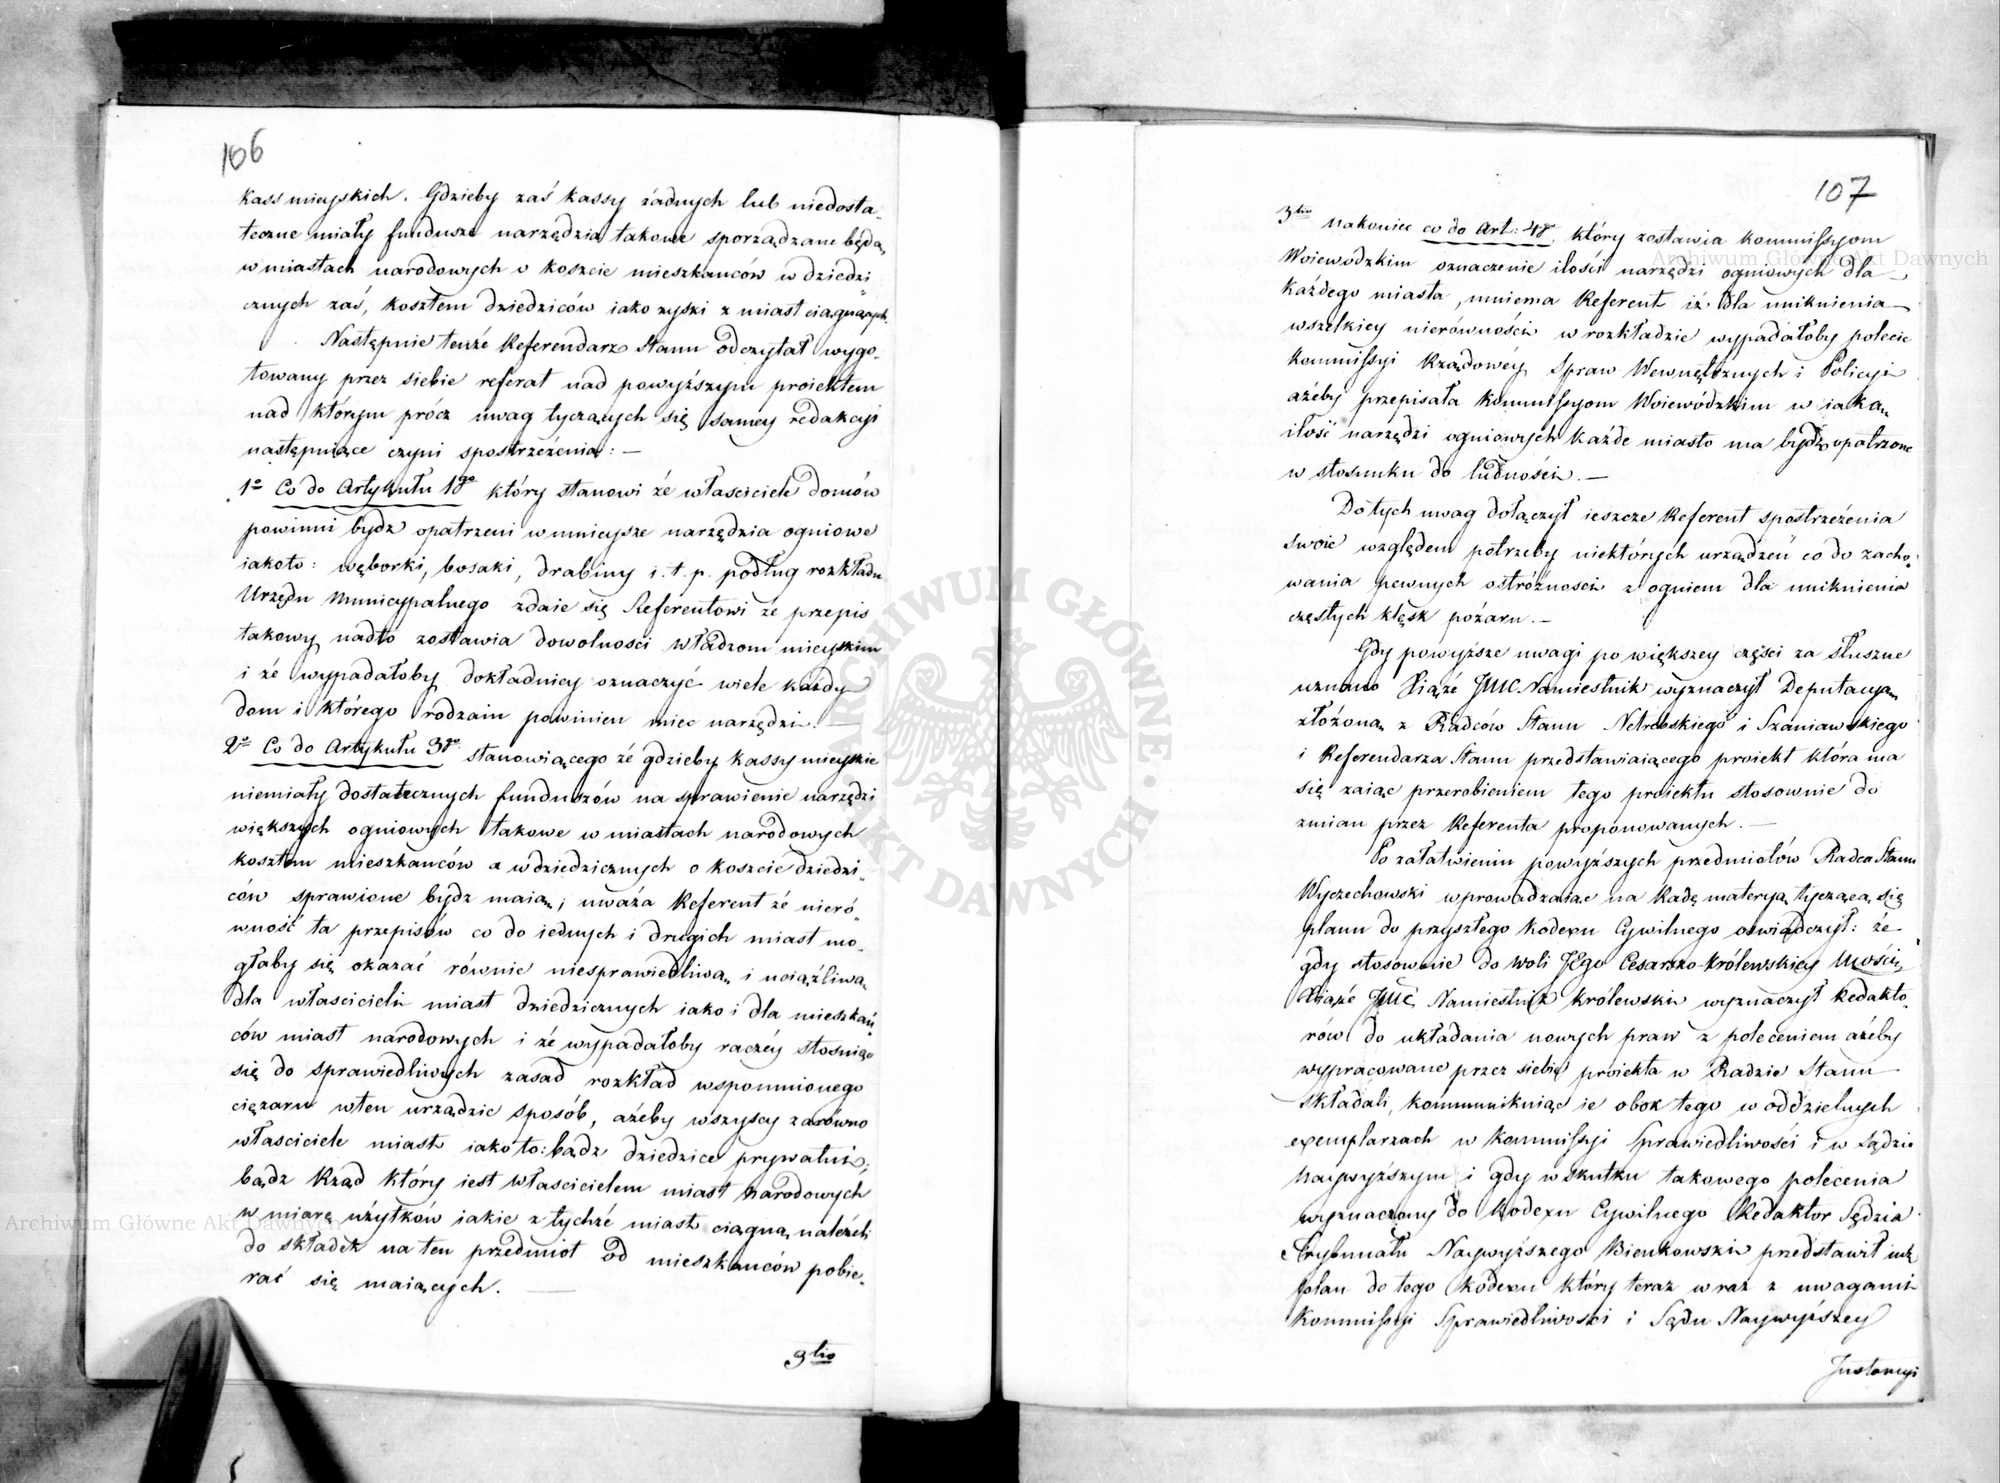 106
kass mieyskich. Gdzieby zaś kassy żadnych lub niedosta„
teczne miały fundusze narzędzia takowe sporządzane będą
w miastach narodowych o koszcie mieszkanców w dziedzi„
cznych zaś, kosztem dziedziców iako zyski z miast ciągnących.
Następnie tenże Referendarz Stanu odczytał wygo„
towany przez siebie referat nad powyższym proiektem
nad którym prócz uwag tyczących się samey redakcyi
następuiące czyni spostrzeżenia: —
1º Co do Artykułu 1go który stanowi że właściciele domów
powinni bydz opatrzeni w mnieysze narzędzia ogniowe
iakoto: węborki, bosaki, drabiny i. t. p. podług rozkładu
Urzędu Municypalnego zdaie się Referentowi że przepis
takowy nadto zostawia dowolności władzom mieyskim
i że wypadałoby dokładniey oznaczyć wiele każdy
dom i którego rodzaiu powinien miec narzędzi. —
2º Co do Artykułu 3go stanowiącego że gdzieby kassy mieyskie
niemiały dostatecznych funduszów na sprawienie narzędzi
większych ogniowych takowe w miastach narodowych
kosztem mieszkanców a w dziedzicznych o koszcie dziedzi„
ców sprawione bydz maią, uważa Referent że nieró„
wność ta przepisów co do iednych i drugich miast mo„
głaby się okazać równie niesprawiedliwą i uciążliwą
dla właścicieli miast dziedzicznych iako i dla mieszkań„
ców miast narodowych i że wypadałoby raczéy stosuiąc
się do sprawiedliwych zasad rozkład wspomnionego
ciężaru w ten urządzic sposób, ażeby wszyscy zarówno
właściciele miast iako to: bądz dziedzice prywatni,
bądz Rząd który iest właścicielem miast narodowych
w miarę użytków iakie z tychże miast ciągną należeli
do składek na ten przedmiot od mieszkanców pobie„
rać się maiących. —
3tio
107
3tio Nakoniec co do Art: 4go który zostawia Kommissyom
Woiewódzkim oznaczenie ilości narzędzi ogniowych dla
każdego miasta, mniema Referent iż dla uniknienia
wszelkiey nierówności w rozkładzie wypadałoby polecic
Kommissyi Rządowéy Spraw Wewnętrznych i Policyi
ażeby przepisała Kommissyom Woiewódzkim w iaką
ilość narzędzi ogniowych każde miasto ma bydź opatrzone
w stosunku do ludności. —
Do tych uwag dołączył ieszcze Referent spostrzeżenia
swoie względem potrzeby niektórych urządzeń co do zacho„
wania pewnych ostróżności z ogniem dla uniknienia
częstych klęsk pożaru. —
Gdy powyższe uwagi po większey części za słuszne
uznano Xiąże JMC Namiestnik wyznaczył Deputacyą
złożoną z Radców Stanu Netrebskiego i Szaniawskiego
i Referendarza Stanu przedstawiaiącego proiekt która ma
się zaiąc przerobieniem tego proiektu stosownie do
zmian przez Referenta proponowanych. —
Po załatwieniu powyższych przedmiotów Radca Stanu
Wyczechowski wprowadzaiąc na Radę materyą tyczącą się
planu do przyszłego Kodexu Cywilnego oświadczył: że
gdy stosownie do woli JEgo Cesarsko-Królewskiey Mości
Xiąże JMC Namiestnik Królewski wyznaczył Redakto„
rów do układania nowych praw z poleceniem ażeby
wypracowane przez siebie proiekta w Radzie Stanu
składali, kommunikuiąc ie obok tego w oddzielnych
exemplarzach w Kommissyi Sprawiedliwości i w Sądzie
Naywyższym i gdy w skutku takowego polecenia
wyznaczony do Kodexu Cywilnego Redaktor Sędzia
Trybunału Naywyższego Bienkowski przedstawił iuż
plan do tego Kodexu który teraz wraz z uwagami
Kommissyi Sprawiedliwości i Sądu Naywyższey
Instancyi